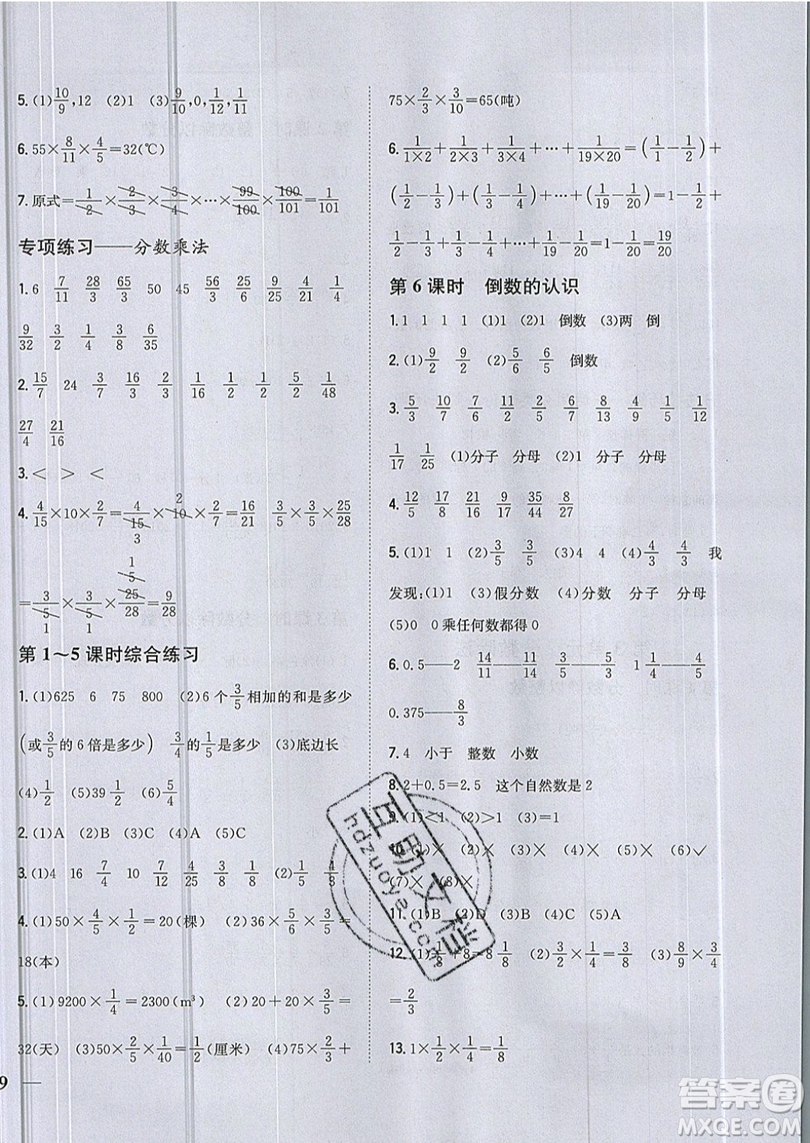 5.(1)10/9,12 (2)1 (3)9/10,0,1/12,1/11
6.55×8/11×4/5=32(℃)
7.原式=1/2×2/3×3/4×…×99/100×100/101=1/101
专项练习——分数乘法
1.6 7/11 28/3 65/3 50 45 56/5 25/6 9/25 4/9
9/32 2/3 1/4 8/3 6/35
2.15/7 24 3/7 16/3 2/3 1/16 1/2 1/5 1/48
27/4 21/16
3.< > <
4.4/15×10×2/7=4/15×10×2/7=16/21 3/5×3/5×25/28
3
2
=3/5×3/5×25/28=9/28
1
1
1
5
第1~5课时综合练习
1.(1)625 6 75 800 (2)6个3/5相加的和是多少
(或3/5的6倍是多少) 3/4的1/5是多少 (3)底边长
(4)1/2 (5)39 1/2 (6)5/4
2.(1)A (2)B (3)C (4)A (5)C
3.(1)4 16 7/4 10 7/2 1/4 5/8 3/8 (2)3/4 1/5 4/5
4.(1)50×4/5×1/2=20(棵) (2)36×5/6×3/5=
18(本)
5.(1)9200×1/4=2300(m³) (2)20+20×3/5=
32(天) (3)50×2/5×1/40=1/2(厘米) (4)75×2/3+
9
75×2/3×3/10=65(吨)
6.1/1×2+1/2×3+1/3×4+…+1/19×20=(1/1-1/2)+
(1/2-1/3)+(1/3-1/4)+…+(1/19-1/20)=1-1/2+
1/2-1/3+1/3-1/4+…+1/19-1/20=1-1/20=19/20
第6课时 倒数的认识
1.1 1 1 1 (1)1 (2)1 倒数 (3)两 倒
2.(1)9/2 9/2 (2)5/6 6/5 倒数
3.5/3 10/7 7/6 11/2 2/5 6/7 8/13 4/9 1/5 1/12
1/17 1/25 (1)分子 分母 (2)1 分母
4.12/5 17/4 8/21 9/16 35/44 8/27
5.(1)1 1 (2)3/5 3/5 (3)4 4 (4)4/3 4/3 我
发现:(1)1 (3)假分数 (4)分数 分子 分母
(5)0 0乘任何数都得0
6.0.5——2 14/11——11/14 5/3——3/5 1——1 4——1/4
0.375——8/3
7.4 小于 整数 小数
8.2+0.5=2.5 这个自然数是2
9.(1)<1 (2)>1 (3)=1
(3)× (4)× (5)× (6)√
(7)× (8)×
11.(1)B (2)D (3)B (4)C (5)A
12.(1)1/8+8=8 1/8 (2)1/2×3/4=3/8 (3)8/9×3/4
=2/3
13.1×1/2×1/3=1/6
互助文档
hdzuoye.com
答案圈
MXQE.COM